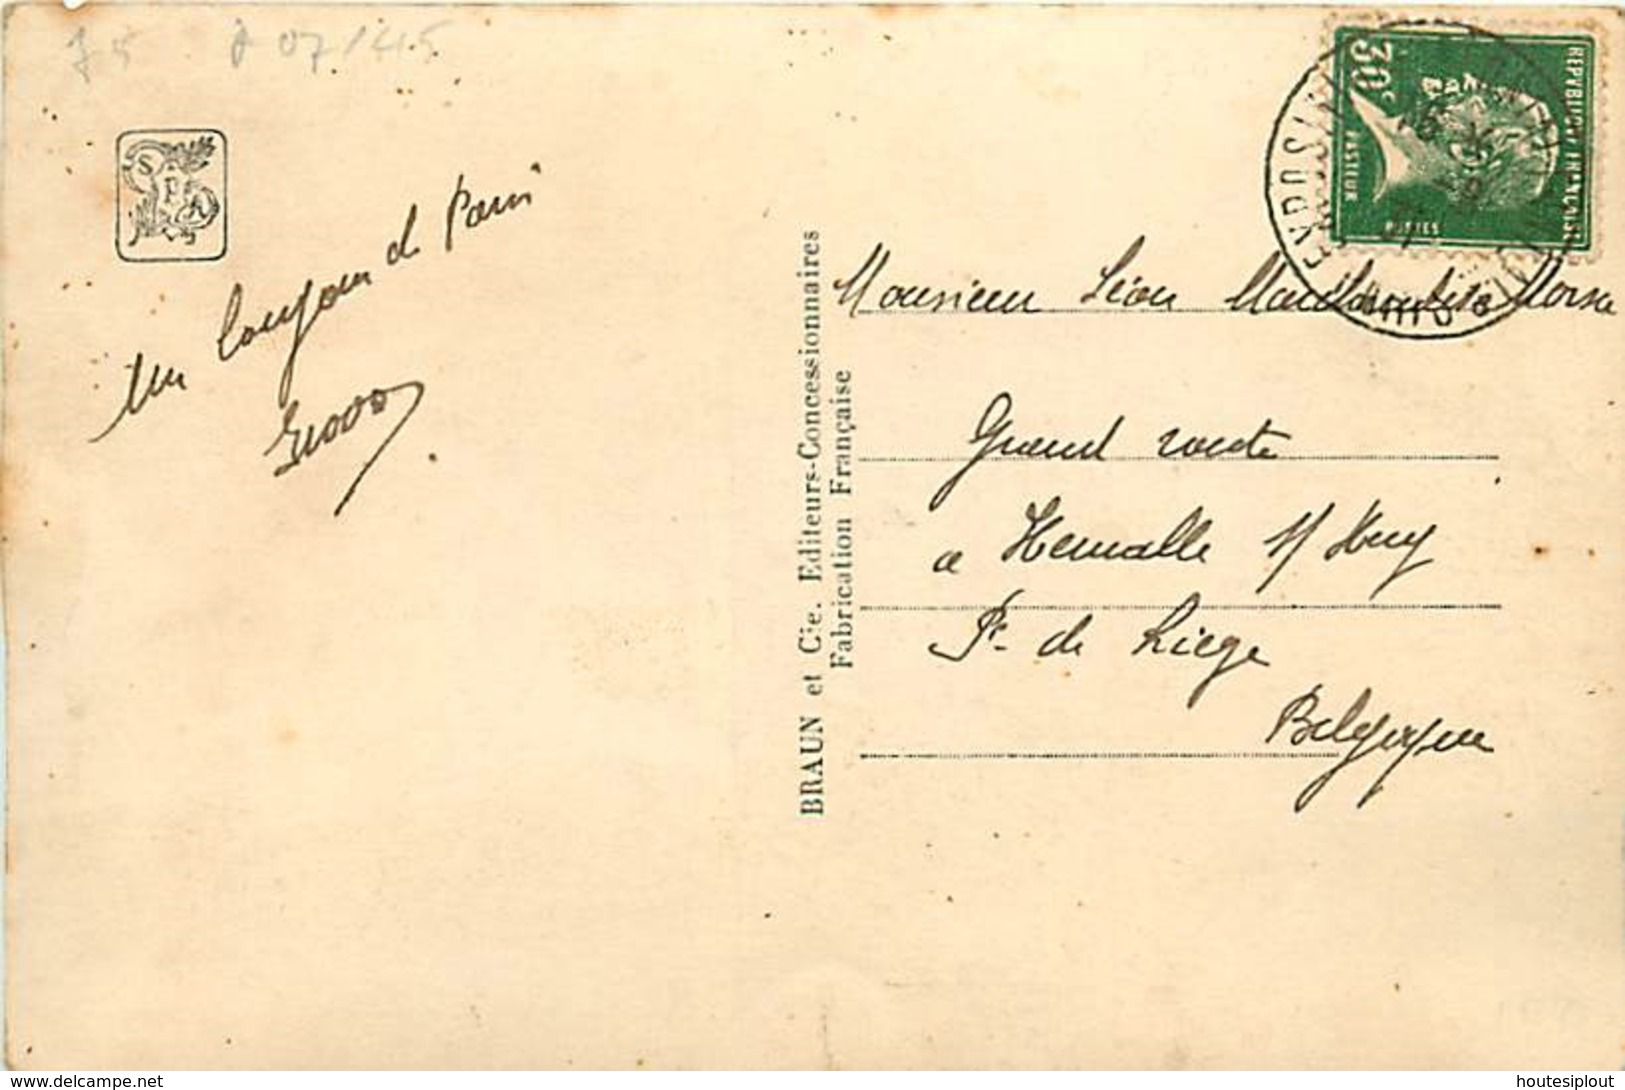 J 5 07/45
S P A
Un bonjour de Paris
BRAUN et Cie. Editeurs-Concessionnaires
Fabrication Française
30c
REPUBLIQUE FRANCAISE
PASTEUR
POSTES
Monsieur Léon
Grand route
a Hermalle s/ Huy
Pr. de Liege
Belgique
www.delcampe.net
houtesiplout